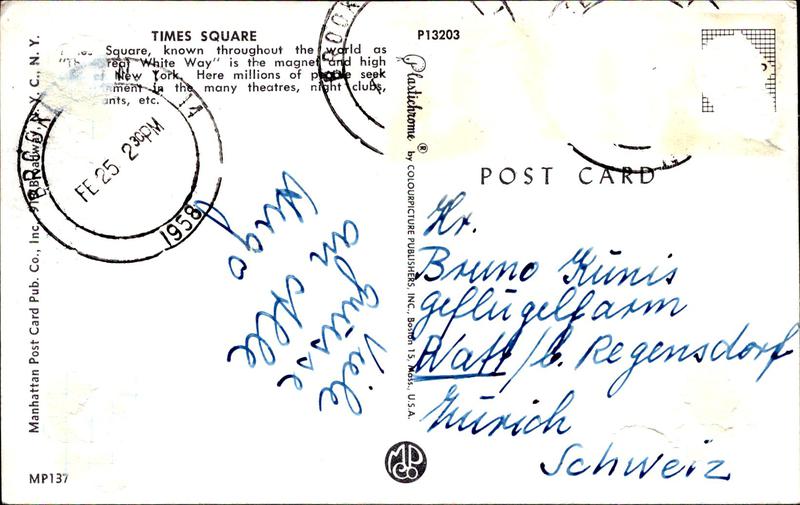 TIMES SQUARE
Square, known throughout the world as
"The Great White Way" is the magnet and high
of New York. Here millions of people seek
in the many theatres, night clubs,
etc.
MP137
Manhattan Post Card Pub. Co., Inc., 913 Broadway, N. Y. C., N. Y.
FE 25 2 30 PM
1958
Viele
grüsse
an Alle
Hugo
Plastichrome ® by COLOURPICTURE PUBLISHERS, INC., Boston 15, Mass., U.S.A.
MP
CO
P13203
POST CARD
Hr.
Bruno Künis
Geflügelfarm
Watt / b. Regensdorf
Zürich
Schweiz